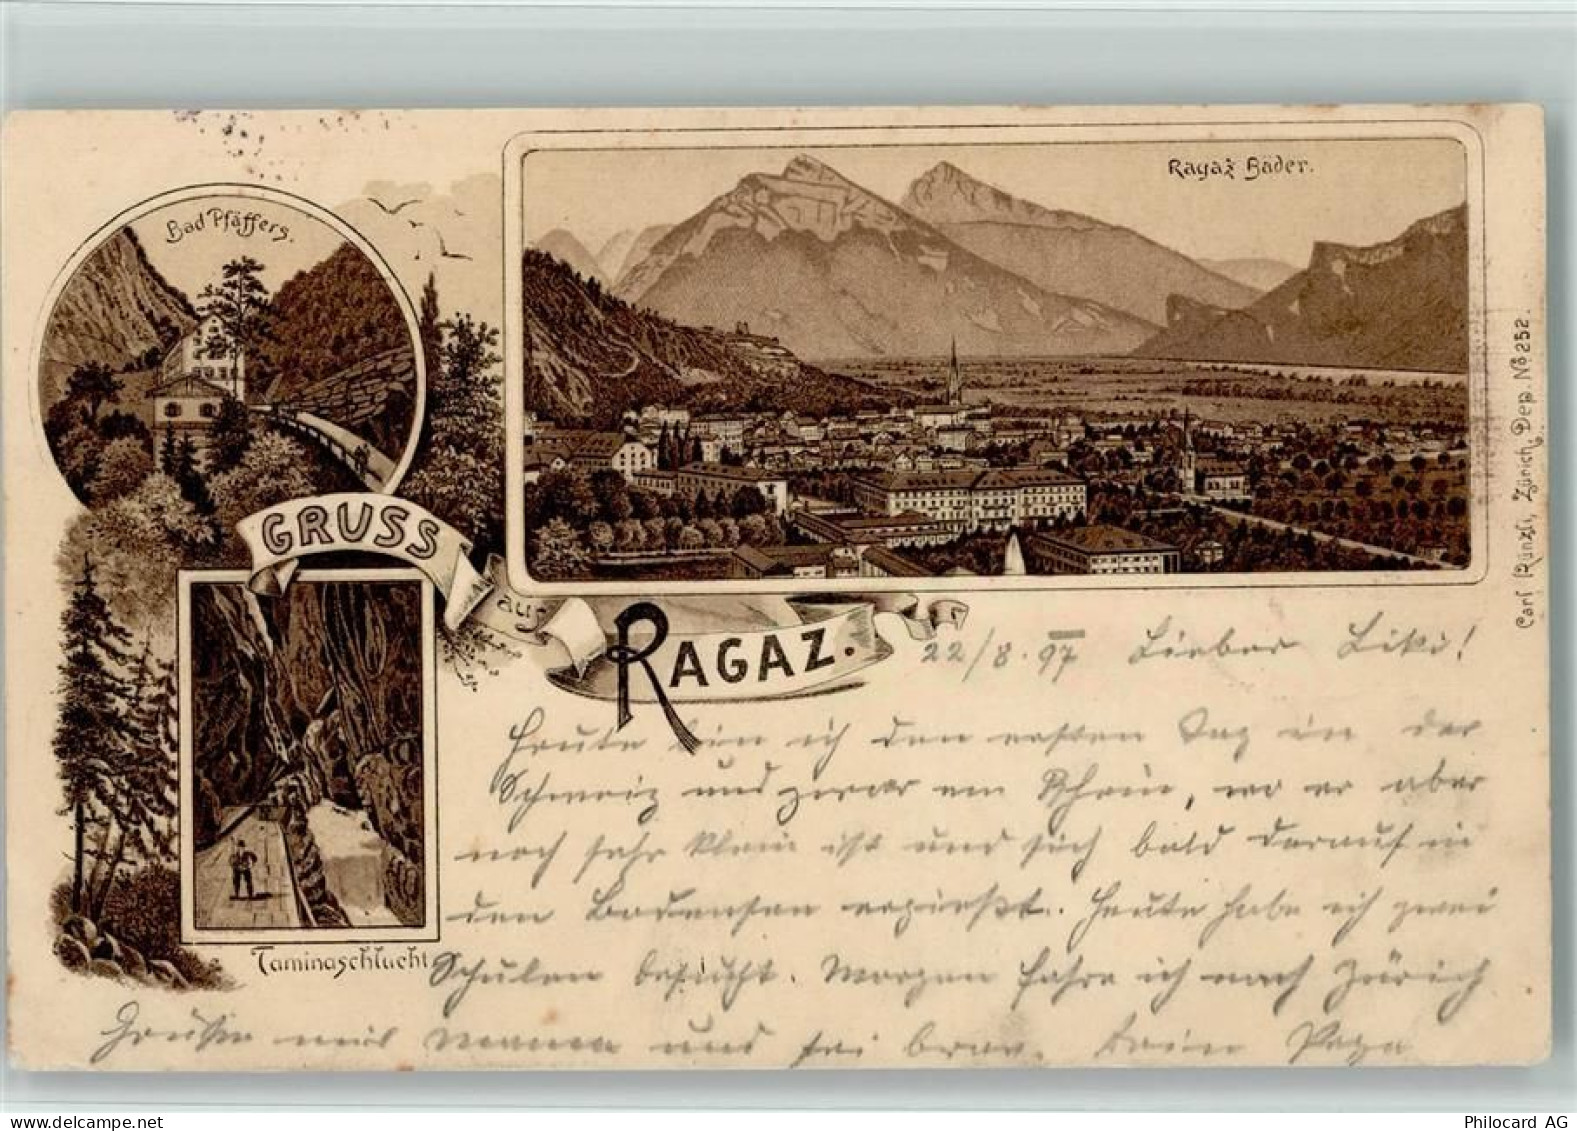 Bad Pfäffers.
Ragaz Bäder.
GRUSS
aus
RAGAZ.
Taminaschlucht
Carl Künzli, Zürich, Dep. No 252.
22/8. 97 Lieber Liki!
Heute bin ich den ersten Tag in der
Schweiz und zwar am Rhein, wo er aber
noch sehr klein ist und sich bald darauf in
den Bodensee ergießt. Heute habe ich zwei
Schulen besucht. Morgen fahre ich nach Zürich
Grüße mir Mama und sei brav. Dein Papa
delcampe.net
Philocard AG